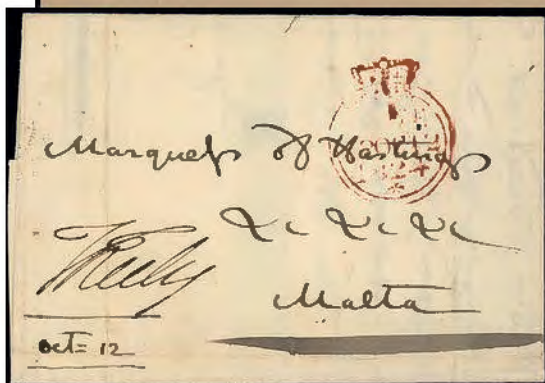 Marquess of Hastings
&c &c &c
Malta
Octr 12